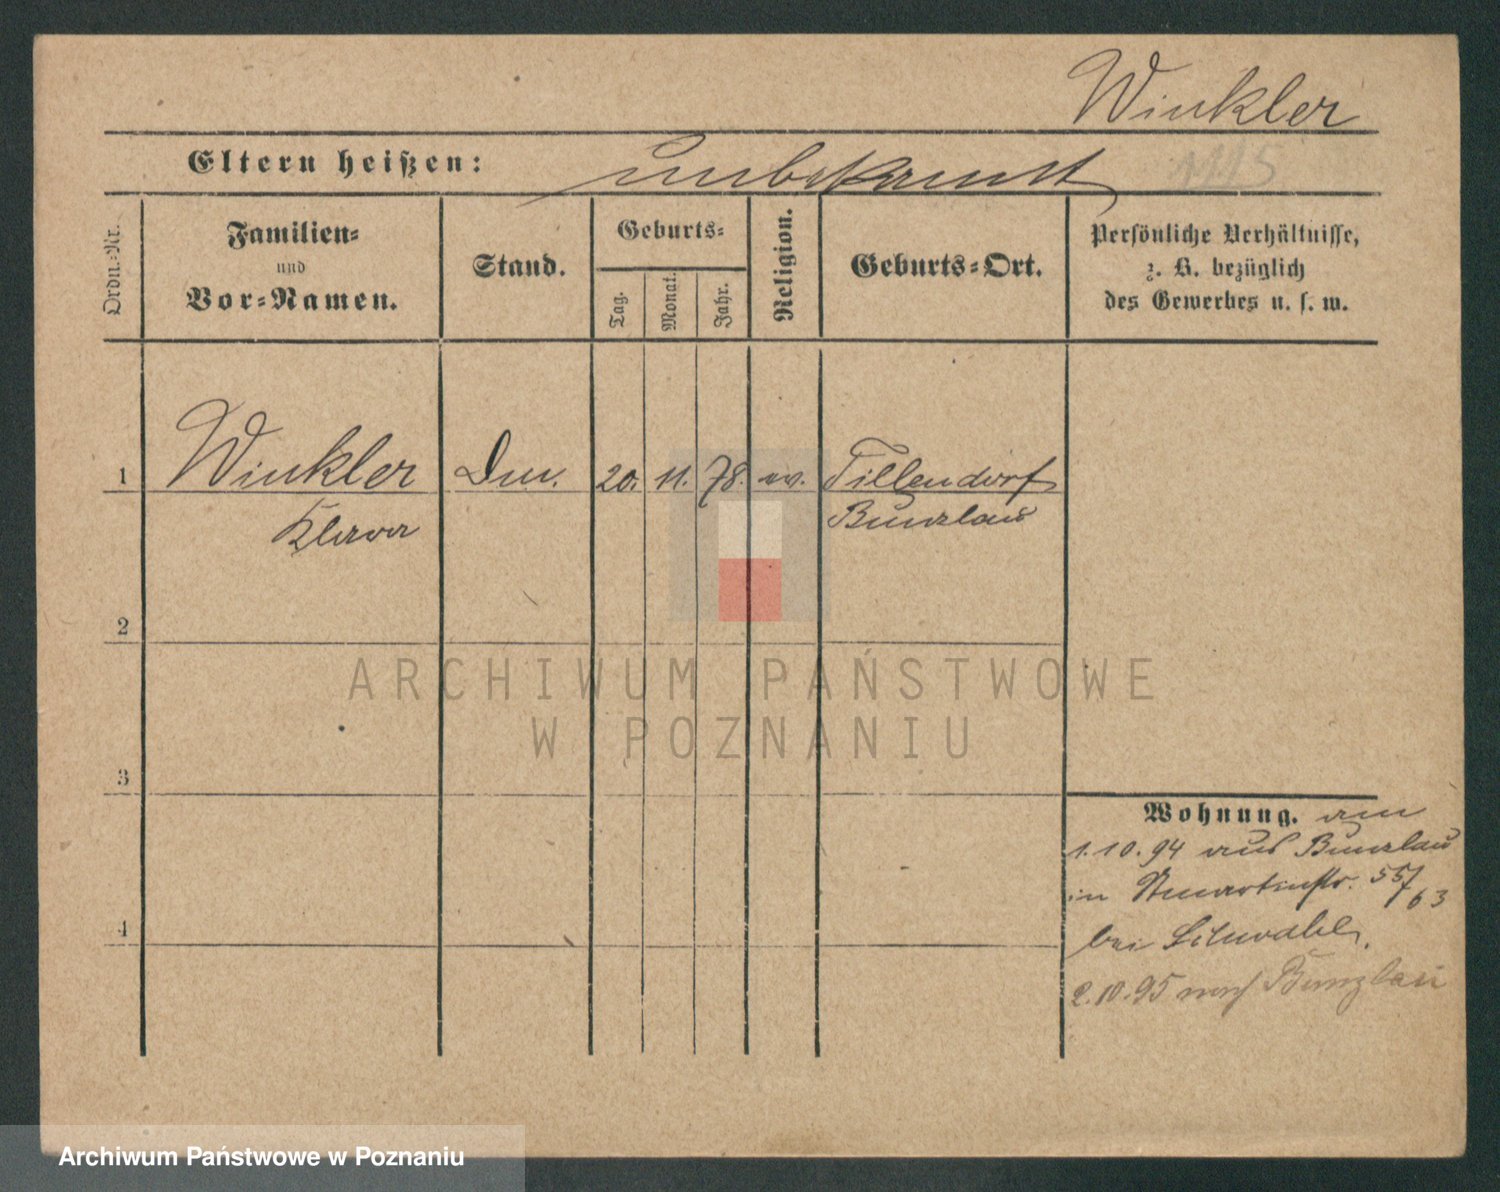 Winkler
Eltern heißen: unbekannt
1115
Ordn.-Nr.
Familien-
und
Vor-Namen.
Stand.
Geburts-
Tag.
Monat.
Jahr.
Religion.
Geburts-Ort.
Persönliche Verhältnisse,
z. B. bezüglich
des Gewerbes u. s. w.
1 Winkler 20. 11. 78. ev. Tillendorf
Klara Bunzlau
2
3
4
Wohnung. am
1.10.94 aus Bunzlau
in 57/63
bei
2.10.95 nach Bunzlau
ARCHIWUM PAŃSTWOWE
W POZNANIU
Archiwum Państwowe w Poznaniu